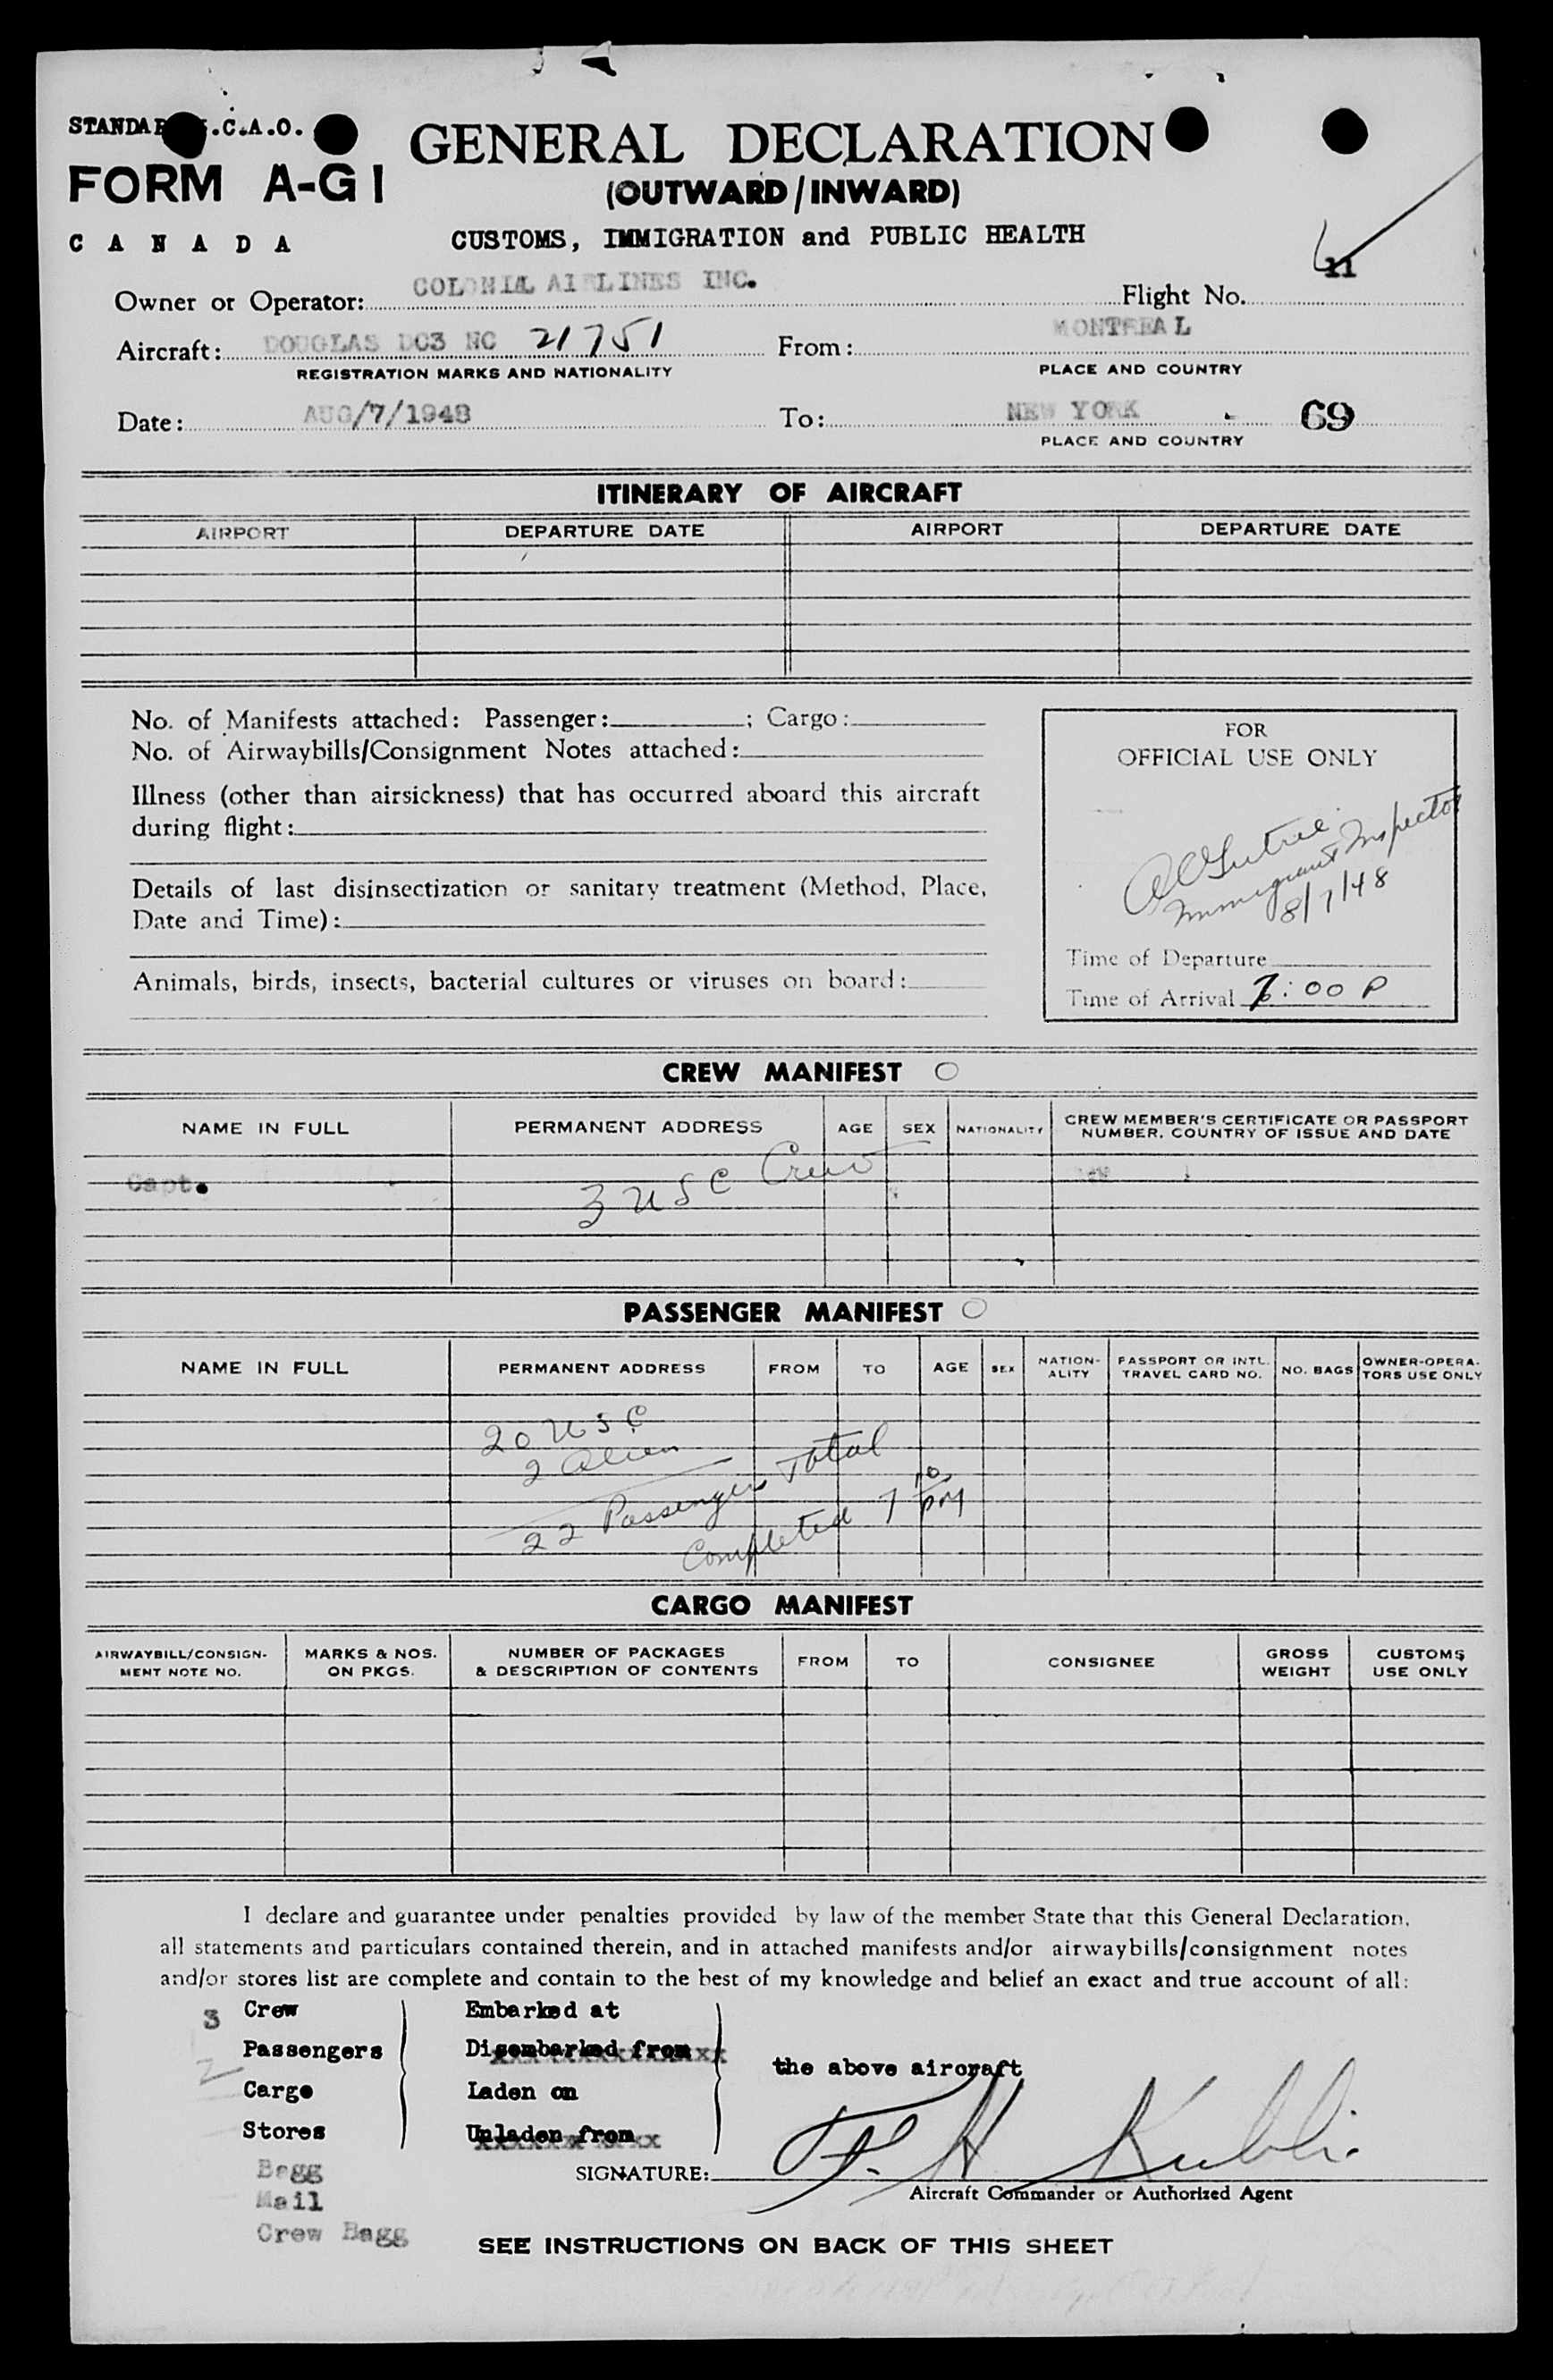 STANDA .C.A.O.
GENERAL DECLARATION
FORM A-G1
(OUTWARD/INWARD)
CANADA
CUSTOMS, IMMIGRATION and PUBLIC HEALTH
11
Owner or Operator: COLONIAL AIRLINES INC. Flight No.
Aircraft: DOUGLAS DC3 NC 21751 From: MONTREAL
REGISTRATION MARKS AND NATIONALITY PLACE AND COUNTRY
Date: AUG/7/1948 To: NEW YORK 69
PLACE AND COUNTRY
ITINERARY OF AIRCRAFT
AIRPORT DEPARTURE DATE AIRPORT DEPARTURE DATE
No. of Manifests attached: Passenger: ; Cargo:
No. of Airwaybills/Consignment Notes attached:
Illness (other than airsickness) that has occurred aboard this aircraft
during flight:
Details of last disinsectization or sanitary treatment (Method, Place,
Date and Time):
Animals, birds, insects, bacterial cultures or viruses on board:
FOR
OFFICIAL USE ONLY
Immigrant Inspector
8/7/48
Time of Departure
Time of Arrival 7:00 P
CREW MANIFEST
NAME IN FULL PERMANENT ADDRESS AGE SEX NATIONALITY CREW MEMBER'S CERTIFICATE OR PASSPORT
NUMBER, COUNTRY OF ISSUE AND DATE
Capt.
3 USC Crew
PASSENGER MANIFEST
NAME IN FULL PERMANENT ADDRESS FROM TO AGE SEX NATION-
ALITY PASSPORT OR INTL.
TRAVEL CARD NO. NO. BAGS OWNER-OPERA-
TORS USE ONLY
20 USC
2 alien
22 Passenger Total
Completed 7 10 PM
CARGO MANIFEST
AIRWAYBILL/CONSIGN-
MENT NOTE NO. MARKS & NOS.
ON PKGS. NUMBER OF PACKAGES
& DESCRIPTION OF CONTENTS FROM TO CONSIGNEE GROSS
WEIGHT CUSTOMS
USE ONLY
I declare and guarantee under penalties provided by law of the member State that this General Declaration,
all statements and particulars contained therein, and in attached manifests and/or airwaybills/consignment notes
and/or stores list are complete and contain to the best of my knowledge and belief an exact and true account of all:
3 Crew Embarked at
Passengers Disembarked from
the above aircraft
Cargo Laden on
Stores Unladen from
Bagg
Mail
Crew Bagg
SIGNATURE: F. H Kubli
Aircraft Commander or Authorized Agent
SEE INSTRUCTIONS ON BACK OF THIS SHEET